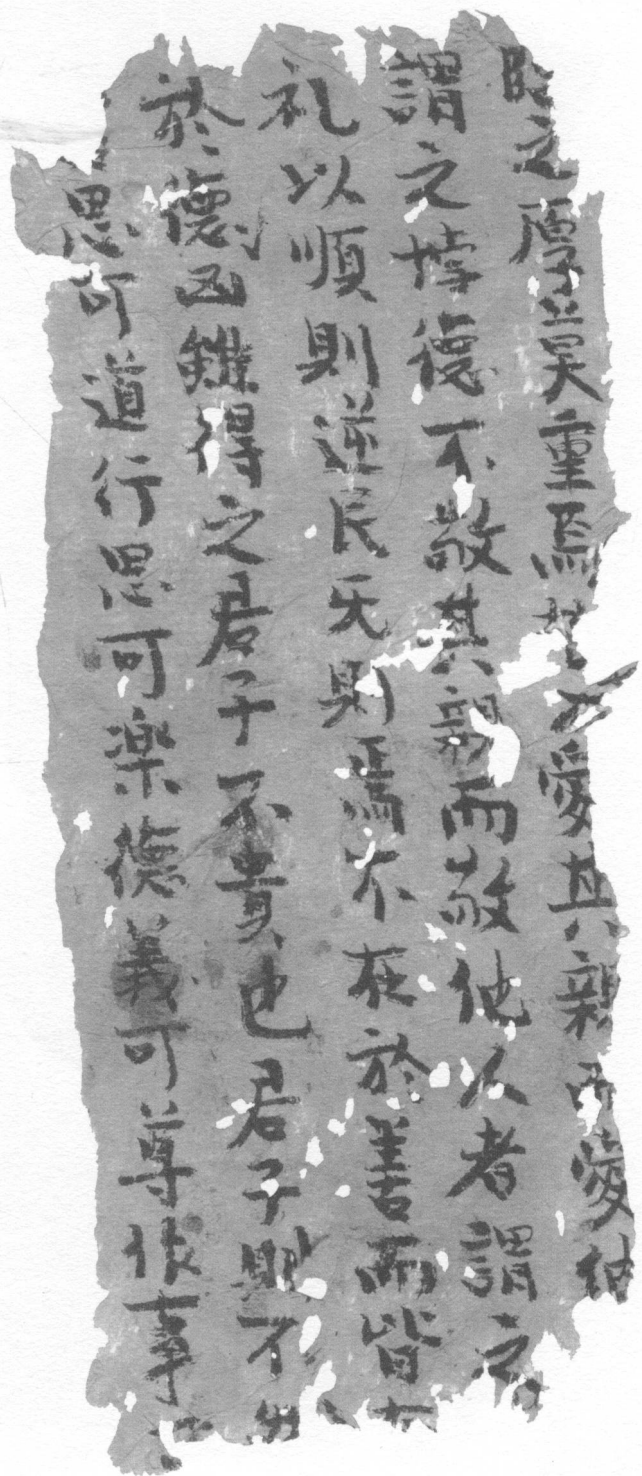 臨之厚莫重焉不愛其親而愛他
謂之悖德不敬其親而敬他人者謂之
礼以順則逆民无則焉不在於善而皆在
於德凶雖得之君子不貴也君子則不
思可道行思可楽德義可尊作事